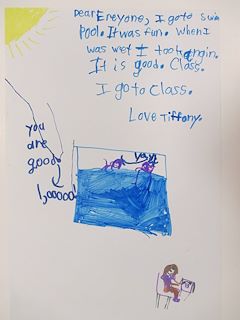 Dear Ereyone, I go to swim
Pool. It was fun. When I
was wet I took
It is good. Class.
I go to Class.
Love Tiffany.
you
are
good.
1,00000!
yay